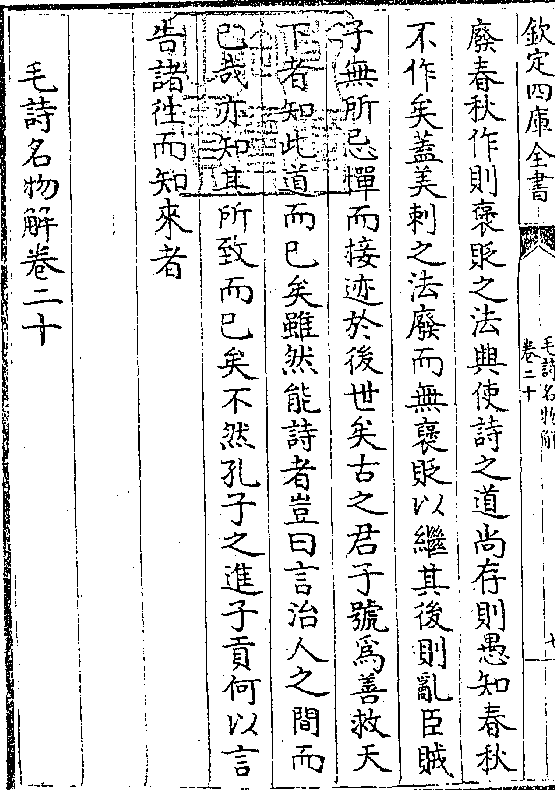 欽定四庫全書
毛詩名物解
卷二十
七
廢春秋作則褒貶之法興使詩之道尚存則愚知春秋
不作矣蓋美刺之法廢而無褒貶以繼其後則亂臣賊
子無所忌憚而接迹於後世矣古之君子號為善救天
下者知此道而已矣雖然能詩者豈曰言治人之間而
已哉亦知其所致而已矣不然孔子之進子貢何以言
告諸徃而知來者
毛詩名物解卷二十